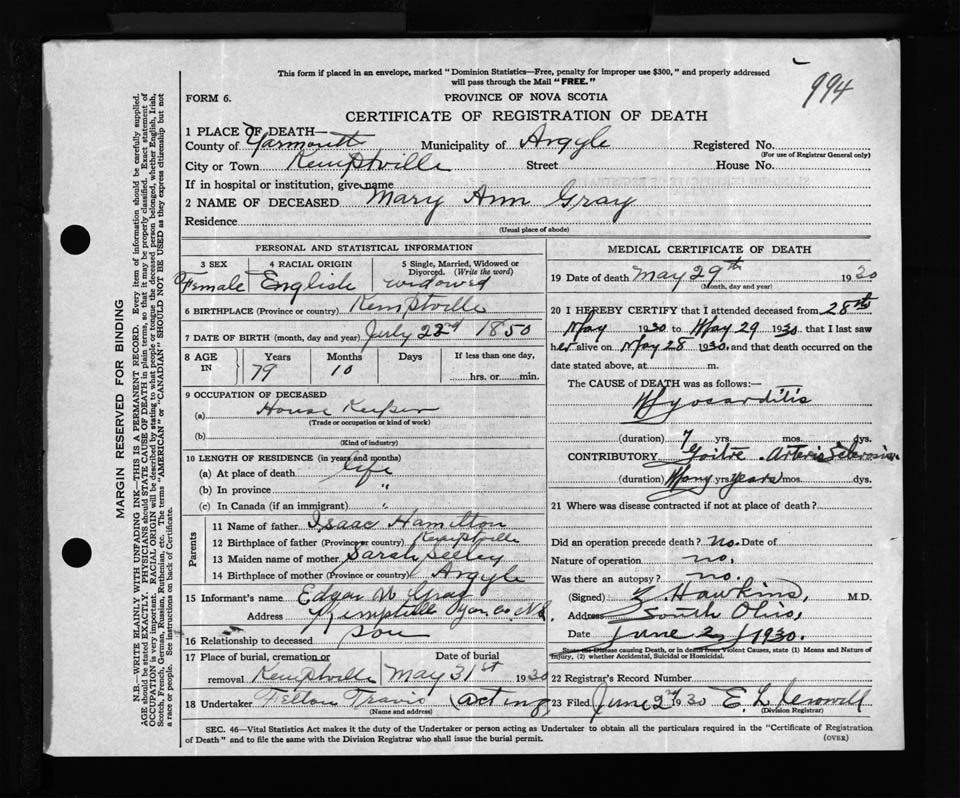 This form if placed in an envelope, marked "Dominion Statistics—Free, penalty for improper use $300," and properly addressed
will pass through the Mail "FREE."
994
FORM 6.
PROVINCE OF NOVA SCOTIA
CERTIFICATE OF REGISTRATION OF DEATH
1 PLACE OF DEATH—
County of Yarmouth Municipality of Argyle Registered No.
(For use of Registrar General only)
City or Town Kemptville Street House No.
If in hospital or institution, give name
2 NAME OF DECEASED Mary Ann Gray
Residence
(Usual place of abode)
PERSONAL AND STATISTICAL INFORMATION
3 SEX 4 RACIAL ORIGIN 5 Single, Married, Widowed or
Divorced. (Write the word)
Female English widowed
6 BIRTHPLACE (Province or country) Kemptville
7 DATE OF BIRTH (month, day and year) July 22nd 1850
8 AGE IN Years Months Days If less than one day,
79 10 hrs. or min.
9 OCCUPATION OF DECEASED
(a) House Keeper
(Trade or occupation or kind of work)
(b)
(Kind of industry)
10 LENGTH OF RESIDENCE (in years and months)
(a) At place of death life
(b) In province "
(c) In Canada (if an immigrant) "
Parents
11 Name of father Isaac Hamilton
12 Birthplace of father (Province or country) Kemptville
13 Maiden name of mother Sarah Seeley
14 Birthplace of mother (Province or country) Argyle
15 Informant's name Edgar N Gray
Address Kemptville Yar. co N.S.
16 Relationship to deceased son
17 Place of burial, cremation or Date of burial
removal Kemptville May 31st 1930
18 Undertaker Felton Travis (acting)
(Name and address)
MEDICAL CERTIFICATE OF DEATH
19 Date of death May 29th 1930
(Month, day and year)
20 I HEREBY CERTIFY that I attended deceased from 28th
May 1930 to May 29 1930 that I last saw
her alive on May 28 1930 and that death occurred on the
date stated above, at m.
The CAUSE of DEATH was as follows:—
Myocarditis
(duration) 7 yrs. mos. dys.
CONTRIBUTORY Goitre. Arterio Sclerosis
(duration) Many yrs years mos. dys.
21 Where was disease contracted if not at place of death?
Did an operation precede death? no. Date of
Nature of operation no.
Was there an autopsy? no.
(Signed) Hawkins, M.D.
Address South Ohio,
Date June 2, 1930.
State the Disease causing Death, or in death from Violent Causes, state (1) Means and Nature of
Injury, (2) whether Accidental, Suicidal or Homicidal.
22 Registrar's Record Number
23 Filed June 2nd 1930 E L
(Division Registrar)
SEC. 46—Vital Statistics Act makes it the duty of the Undertaker or person acting as Undertaker to obtain all the particulars required in the "Certificate of Registration
of Death" and to file the same with the Division Registrar who shall issue the burial permit. (OVER)
MARGIN RESERVED FOR BINDING
N.B.—WRITE PLAINLY WITH UNFADING INK—THIS IS A PERMANENT RECORD. Every item of information should be carefully supplied.
AGE should be stated EXACTLY. PHYSICIANS should STATE CAUSE OF DEATH in plain terms, so that it may be properly classified. Exact statement of
OCCUPATION is very important. RACIAL ORIGIN will be described by stating to what people or tongue the deceased person belonged, whether English, Irish,
Scotch, French, German, Russian, Ruthenian, etc. The terms "AMERICAN" or "CANADIAN" SHOULD NOT BE USED as they express citizenship but not
a race or people. See instructions on back of Certificate.